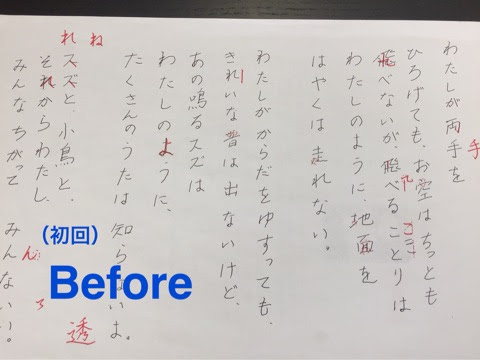 わたしが両手を
手
ひろげても、お空はちっとも
飛べないが、飛べることりは
わたしのように、地面を
はやくは走れない。
わたしがからだをゆすっても、
きれいな音は出ないけど、
あの鳴るスズは
わたしのように、
たくさんのうたは 知らないよ。
ね
れ
スズと、小鳥と、
それからわたし、
みんなちがって みんないい。
ん
透
（初回）
Before